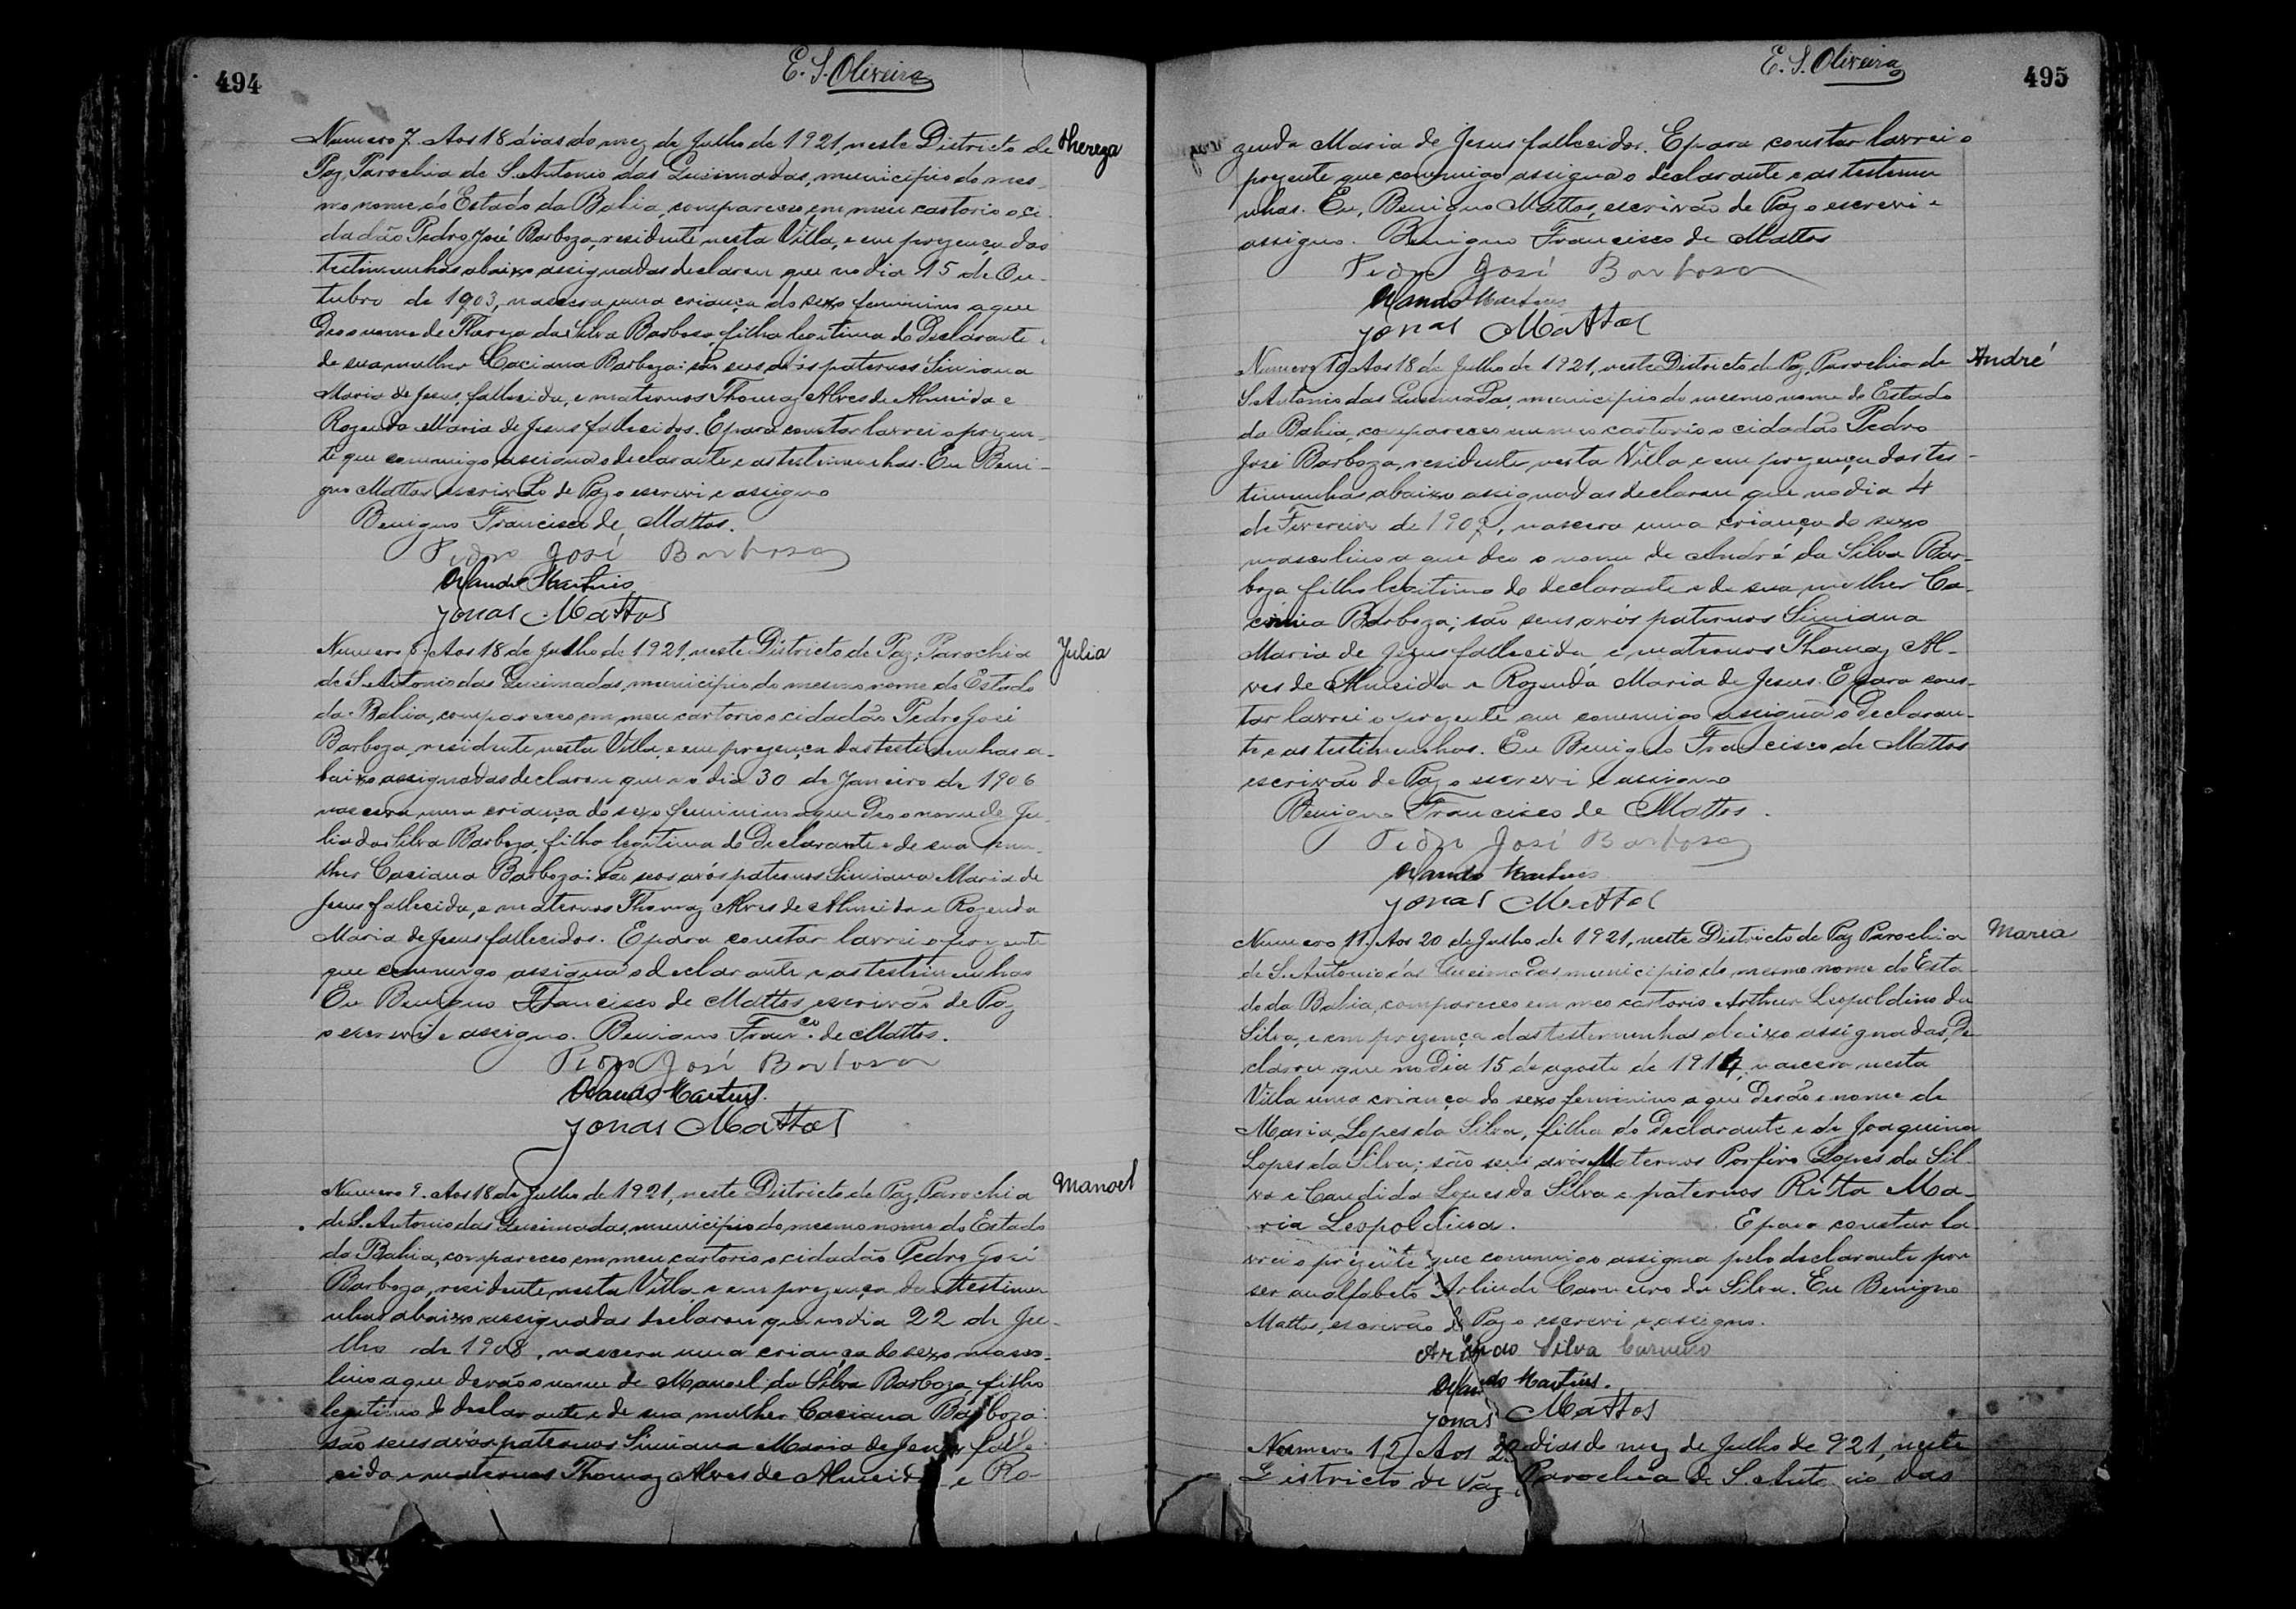 494
E. S. Oliveira
Numero 7. Aos 18 dias do mez de Julho de 1921, neste Districto de
Thereza
Paz, Parochia de S. Antonio das Queimadas, municipio do mes-
mo nome do Estado da Bahia, compareceu em meu cartorio o ci-
dadão Pedro José Barboza, residente nesta Villa, e em prezença das
testimunhas abaixo assignadas declarou que no dia 15 de Ou-
tubro de 1903, nascera uma criança do sexo feminino a que
deo o nome de Thereza da Silva Barboza, filha legitima do Declarante e
de sua mulher Caciana Barboza: são seus avós paternos Simiana
Maria de Jesus, fallecida, e maternos Thomaz Alves de Almeida e
Rozenda Maria de Jesus fallecidos. E para constar larvrei o prezen-
te que commigo assigna o declarante e as testimunhas. Eu Beni-
gno Mattos escrivão de Paz o escrevi e assigno
Benigno Francisco de Mattos.
Pedro José Barbosa
Orlando Martins
Jonas Mattos
Numero 8. Aos 18 de Julho de 1921, neste Districto de Paz, Parochia
Julia
de S. Antonio das Queimadas, municipio do mesmo nome do Estado
da Bahia, compareceo em meu cartorio o cidadão Pedro José
Barboza, residente nesta Villa, e em prezença das testimunhas a-
baixo assignadas declarou que no dia 30 de Janeiro de 1906
nascera uma criança do sexo feminino a que deo o nome de Ju-
lia da Silva Barboza, filha legitima do Declarante e de sua mu-
lher Caciana Barboza: são seos avós paternos Simiana Maria de
Jesus fallecida, e maternos Thomaz Alves de Almeida e Rozenda
Maria de Jesus fallecidos. E para constar larvrei o prezente
que commigo assigna o declarante e as testimunhas
Eu Benigno Francisco de Mattos escrivão de Paz
o escrevi e assigno. Benigno Franco. de Mattos.
Pedro José Barbosa
Orlando Martins.
Jonas Mattos
Numero 9. Aos 18 de Julho de 1921, neste Districto de Paz, Parochia
Manoel
de S. Antonio das Queimadas, municipio do mesmo nome do Estado
da Bahia, compareceo em meu cartorio o cidadão Pedro José
Barboza, residente nesta Villa e em prezença das testimu-
nhas abaixo assignadas declarou que no dia 22 de Ju-
lho de 1908, nascera uma criança do sexo mascu-
lino a que derão o nome de Manoel da Silva Barboza, filho
legitimo do declarante e de sua mulher Caciana Barboza:
são seus avós paternos Simiana Maria de Jesus falle-
cida e maternos Thomaz Alves de Almeida e Ro-
E. S. Oliveira
495
zenda Maria de Jesus fallecidos. E para constar larvrei o
prezente que commigo assigna o declarante e as testemu
nhas. Eu, Benigno Mattos, escrivão de Paz o escrevi e
assigno. Benigno Francisco de Mattos
Pedro José Barbosa
Orlando Martins
Jonas Mattos
Numero 10. Aos 18 de Julho de 1921, neste Districto de Paz, Parochia de
André
S. Antonio das Queimadas, municipio do mesmo nome do Estado
da Bahia, compareceo em meu cartorio o cidadão Pedro
José Barboza, residente nesta Villa e em prezença das tes-
timunhas abaixo assignadas declarou que no dia 4
de Fevereiro de 1909, nascera uma criança do sexo
masculino a que deo o nome de André da Silva Bar-
boza filho legitimo do declarante e de sua mulher Ca-
ciana Barboza; são seus avós paternos Simiana
Maria de Jezus fallecida e maternos Thomaz Al-
ves de Almeida e Rozenda Maria de Jesus. E para cons-
tar larvrei o prezente que commigo assigna o Declaran-
te e as testimunhas. Eu Benigno Francisco de Mattos
escrivão de Paz o escrevi e assigno
Benigno Francisco de Mattos.
Pedro José Barbosa
Orlando Martins
Jonas Mattos
Numero 11. Aos 20 de Julho de 1921, neste Districto de Paz Parochia
Maria
de S. Antonio das Queimadas municipio do mesmo nome do Esta-
do da Bahia, compareceo em meo cartorio Arthur Leopoldino da
Silva, e em prezença das testemunhas abaixo assignadas, De
clarou que no Dia 15 de agosto de 1914, nascera nesta
Villa uma criança do sexo feminino a que Derão o nome de
Maria Lopes da Silva, filha do Declarante e de Joaquina
Lopes da Silva; são seus avós Maternos Porfirio Lopes da Sil-
va e Candida Lopes da Silva e paternos Ritta Ma-
ria Leopoldina. E para constar la-
vrei o prezente que commigo assigna pelo declarante por
ser analfabeto Arlindo Carneiro da Silva. Eu Benigno
Mattos, escrivão de Paz o escrevi e assigno.
Arlindo Silva Carneiro
Orlando Martins.
Jonas Mattos
Numero 12 Aos 22 dias do mez de Julho de 921, neste
Districto de Paz, Parochia de S. Antonio das